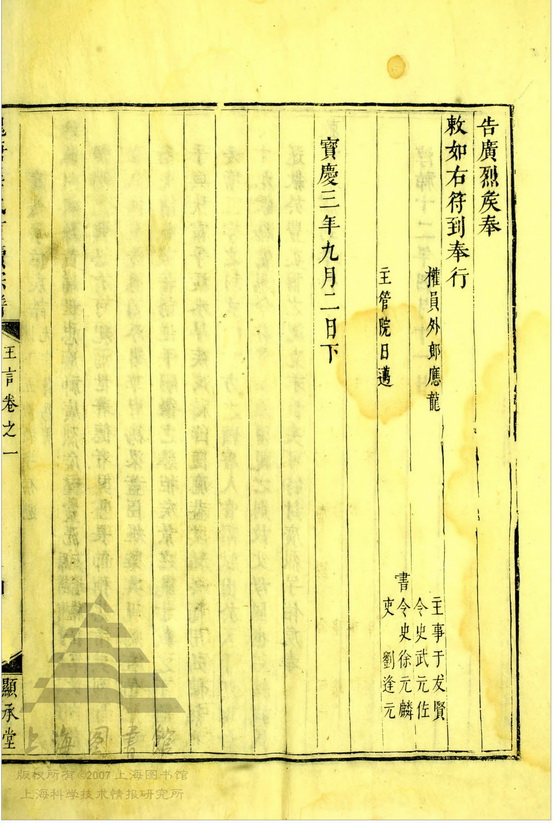 告廣烈矦奉
敕如右符到奉行
權員外郎應龍
主管院日邁
主事于发賢
令史武元佐
書令史徐元麟
吏 劉逢元
寶慶三年九月二日下
王言卷之一
顯承堂
上海图書館
版权所有©2007上海图书馆
上海科学技术情报研究所